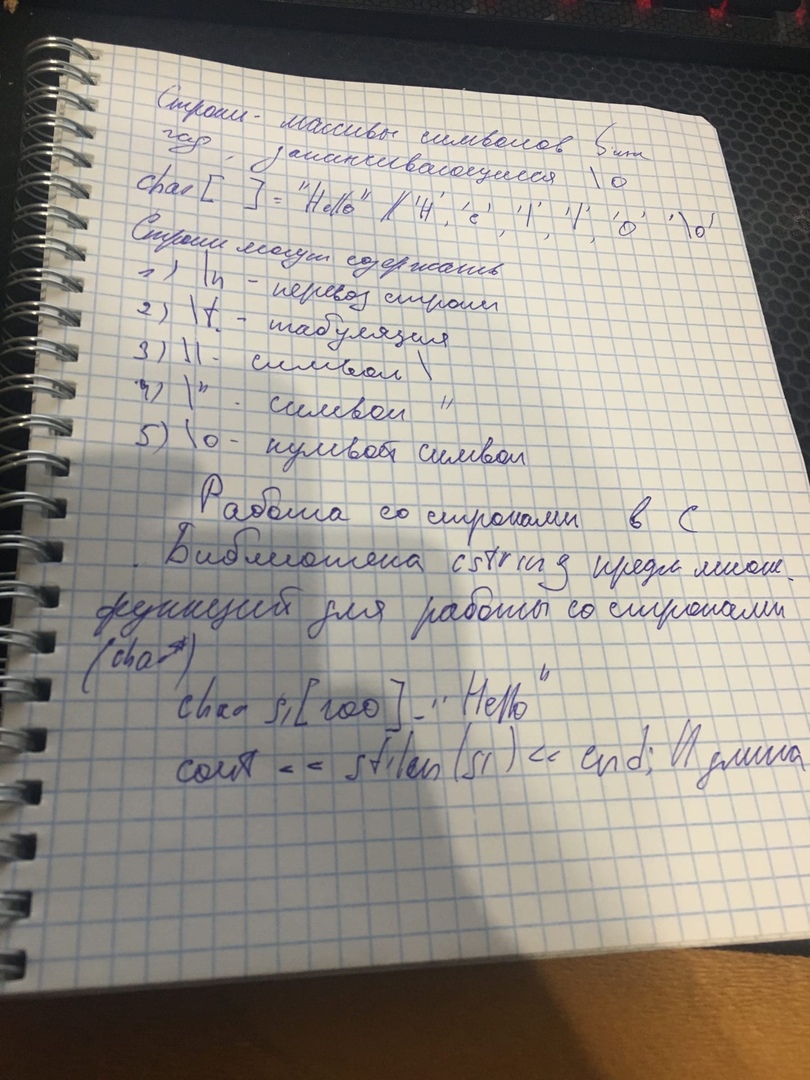 Строки - массивы символов
заканчивающиеся \0
char [ ] = "Hello" // 'H', 'e', 'l', 'l', 'o' '\0'
Строки могут содержать
1) \n - перевод строки
2) \t - табуляция
3) \\ - символ \
4) \" - символ "
5) \0 - нулевой символ
Работа со строками в C
Библиотека cstring предл. множ.
функций для работы со строками
(char*)
char s1[100] = "Hello"
cout << strlen(s1) << end; // длина